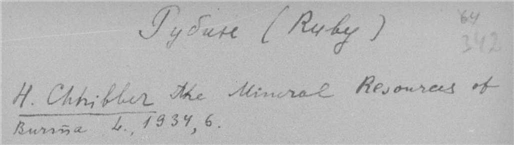 Рубин (Ruby)
64
342
H. Chhibber The Mineral Resources of
Burma L., 1934, 6.